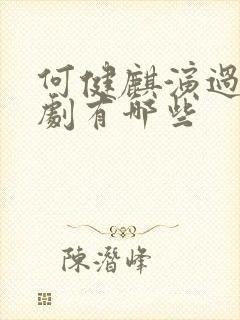 何健麒演過
劇有哪些
陳潛峰